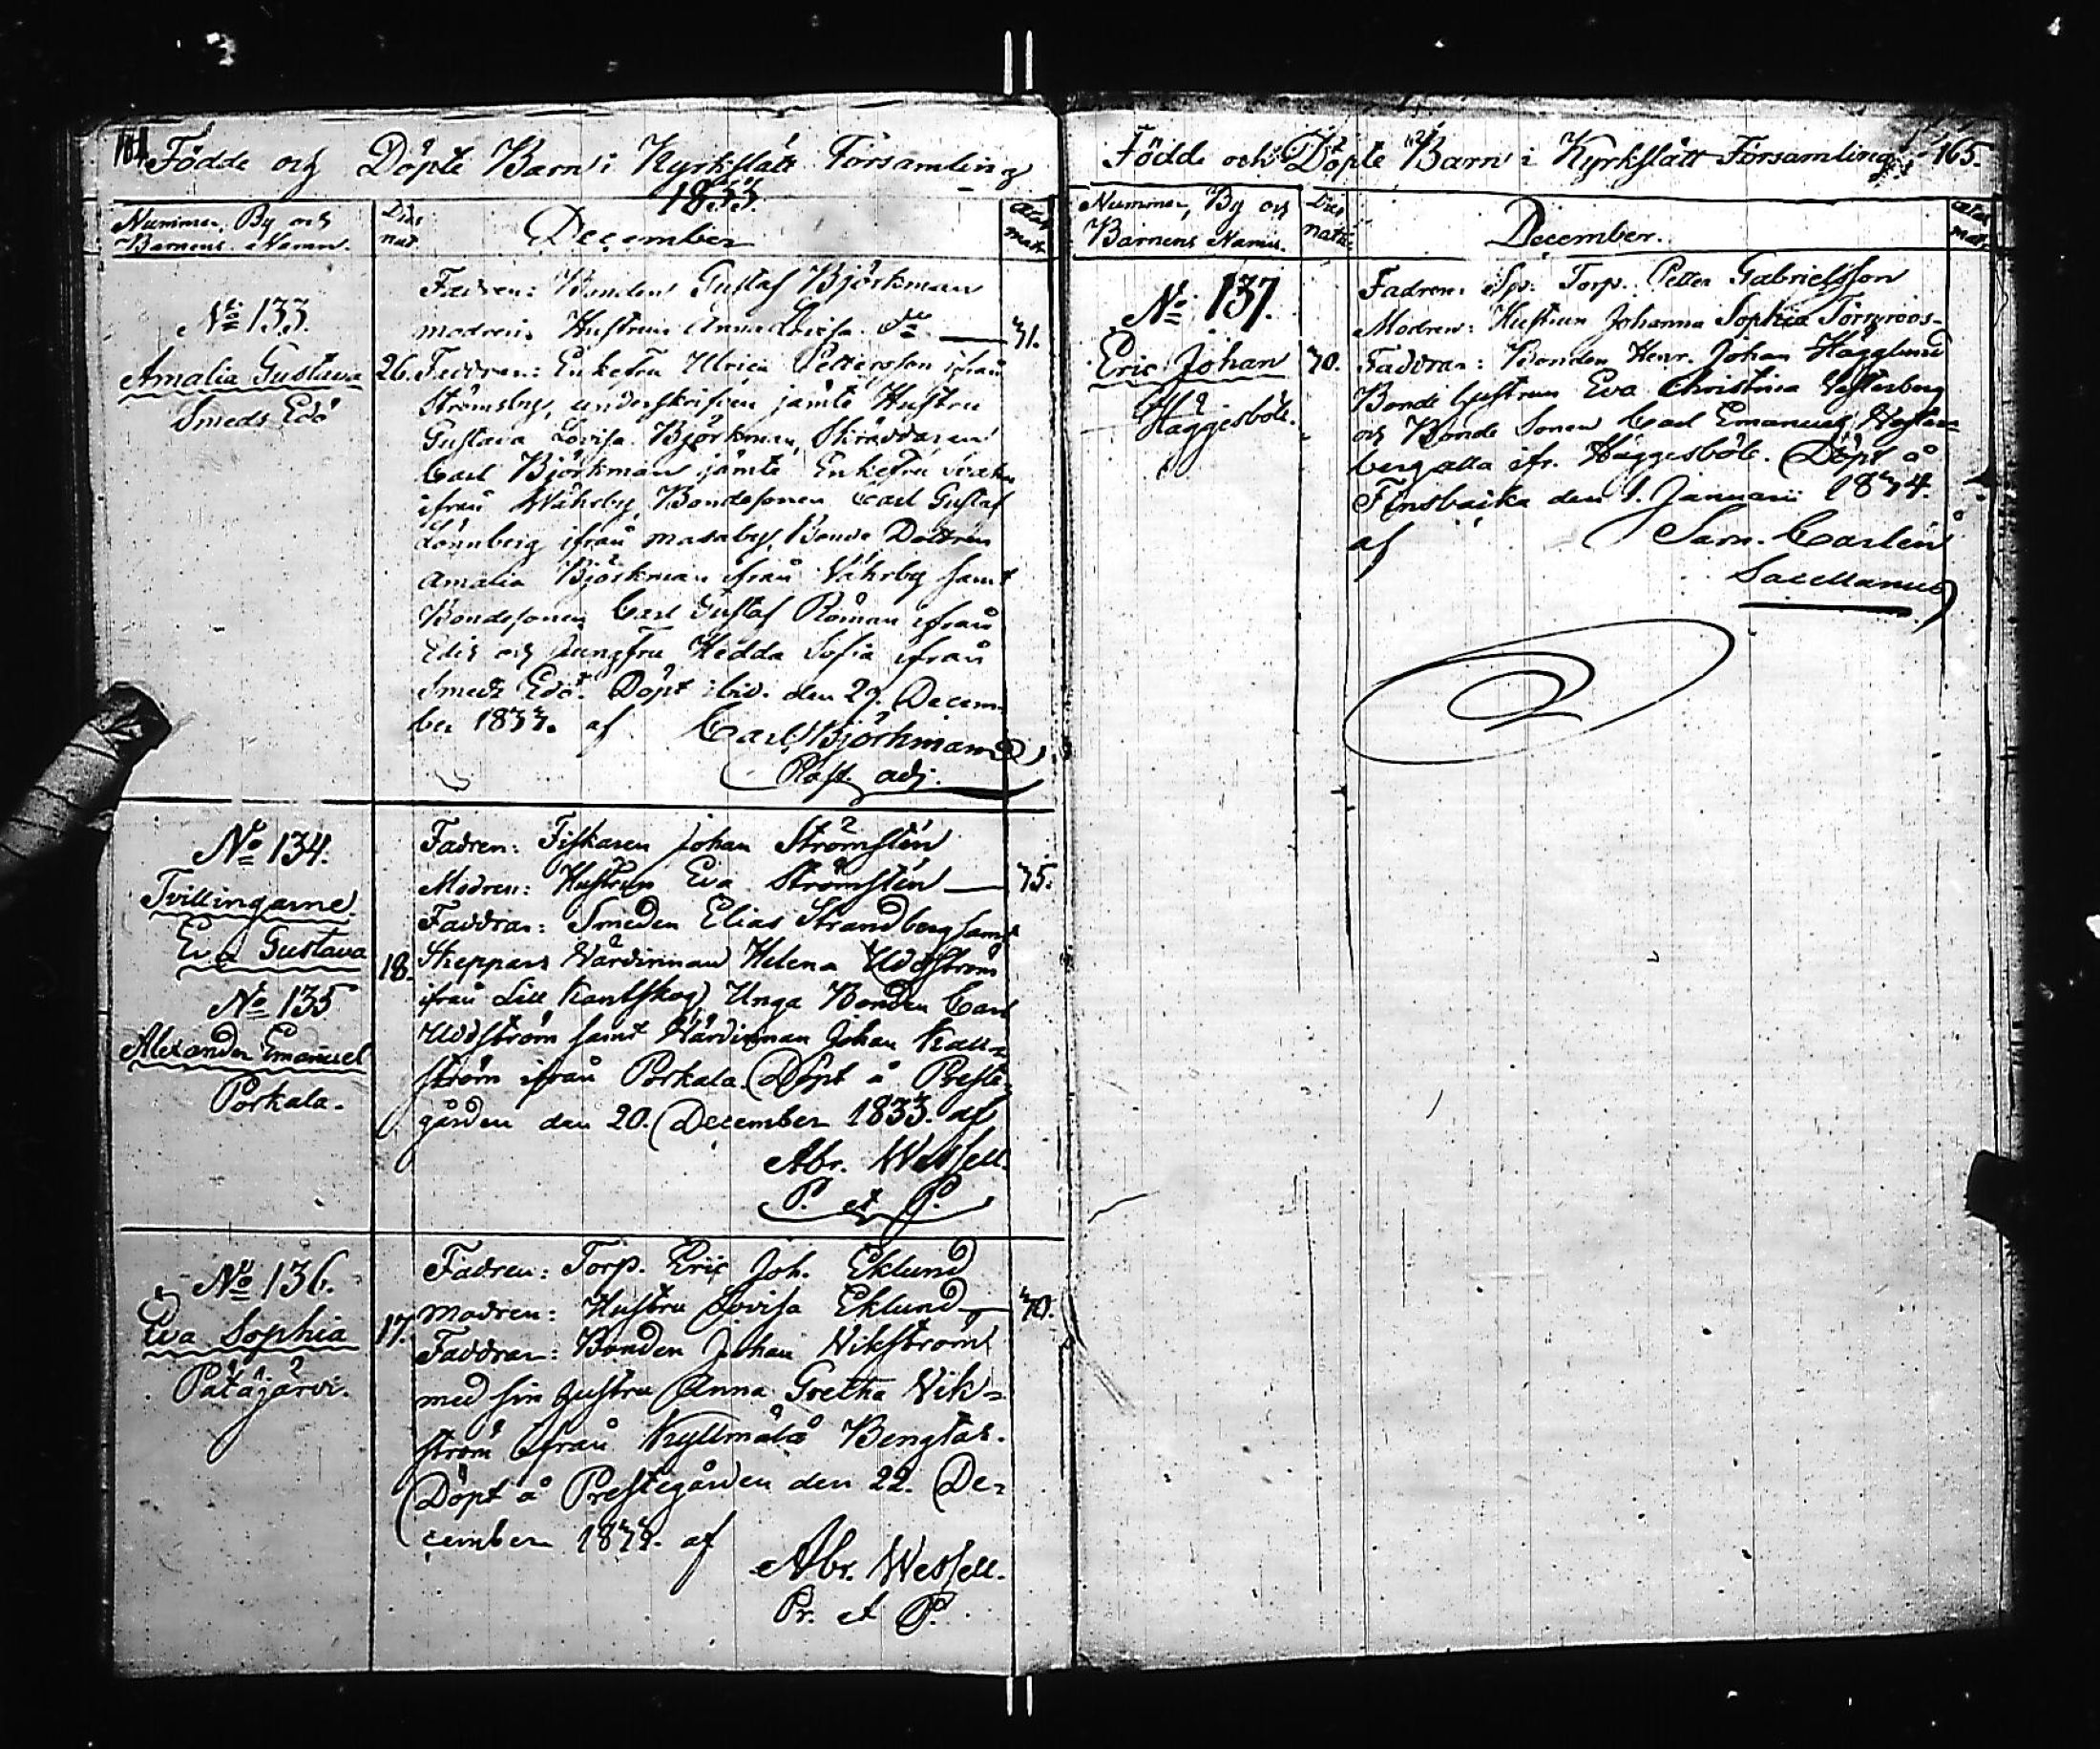 164 Födde och Döpte Barn i Kyrkslätt Församling
1833.
Nummer, By och
Barnens Namn.
Dies
nat.
December
ætas
matr.
No 133.
Amalia Gustava
Smeds Edö
26.
Fadren: Bonden Gustaf Björkman
modren: Hustrun Anna Lovisa do — 31.
Faddran: Enkefru Ulrica Pettersson ifrån
Strömsby, underskrifven jämte Hustru
Gustava Lovisa Björkman, Skräddaren
Carl Björkman jämte Enkefru
ifrån Wåhrby, Bondesonen Carl Gustaf
Lönnberg ifrån Masaby, Bonde Dottren
Amalia Björkman ifrån Våhrby samt
Bondesonen Carl Gustaf Roman ifrån
Edis och Jungfru Hedda Sofia ifrån
Smeds Edö. Döpt ibid. den 29. Decem-
ber 1833. af Carl Björkman
Past. adj.
No 134.
Tvillingarne
Eva Gustava
No 135
Alexander Emanuel
Porkala.
18.
Fadren: Fiskaren Johan Strömstén
Modren: Hustrun Eva Strömstén — 35.
Faddran: Smeden Elias Strandberg samt
Skeppars Värdinnan Helena Uddström
ifrån Lill Kantskog, Unga Bonden Carl
Uddström samt Värdinnan Johan Kall=
ström ifrån Porkala. Döpt å Preste=
gården den 20. December 1833. af
Abr. Wessell.
P. et P.
No 136.
Eva Sophia
Patajärvi.
17.
Fadren: Torp. Eric Joh. Eklund
modren: Hustru Lovisa Eklund — 30.
Faddran: Bonden Johan Wikström
med sin hustru Anna Gretha Wik=
ström ifrån Kyllmälä Bengtas.
Döpt å Prestegården den 22. De=
cember 1833. af
Abr. Wessell.
Pr. et P.
Födde och Döpte Barn i Kyrkslätt Församling 165.
Nummer, By och
Barnens Namn.
Dies
natal.
December.
ætas
mat.
No 137.
Eric Johan
Häggesböle.
30.
Fadren: Torp. Petter Gabrielsson
Modren: Hustrun Johanna Sophia Törnroos-
Faddran: Bonden Henr. Johan Hägglund
Bonde hustrun Eva Christina Vesterberg
och Bonde Sonen Carl Emanuel Vester=
berg alla ifr. Häggesböle. Döpt å
Finsbacka den 1. Januarii 1834.
af Sam. Carlén
Sacellanus